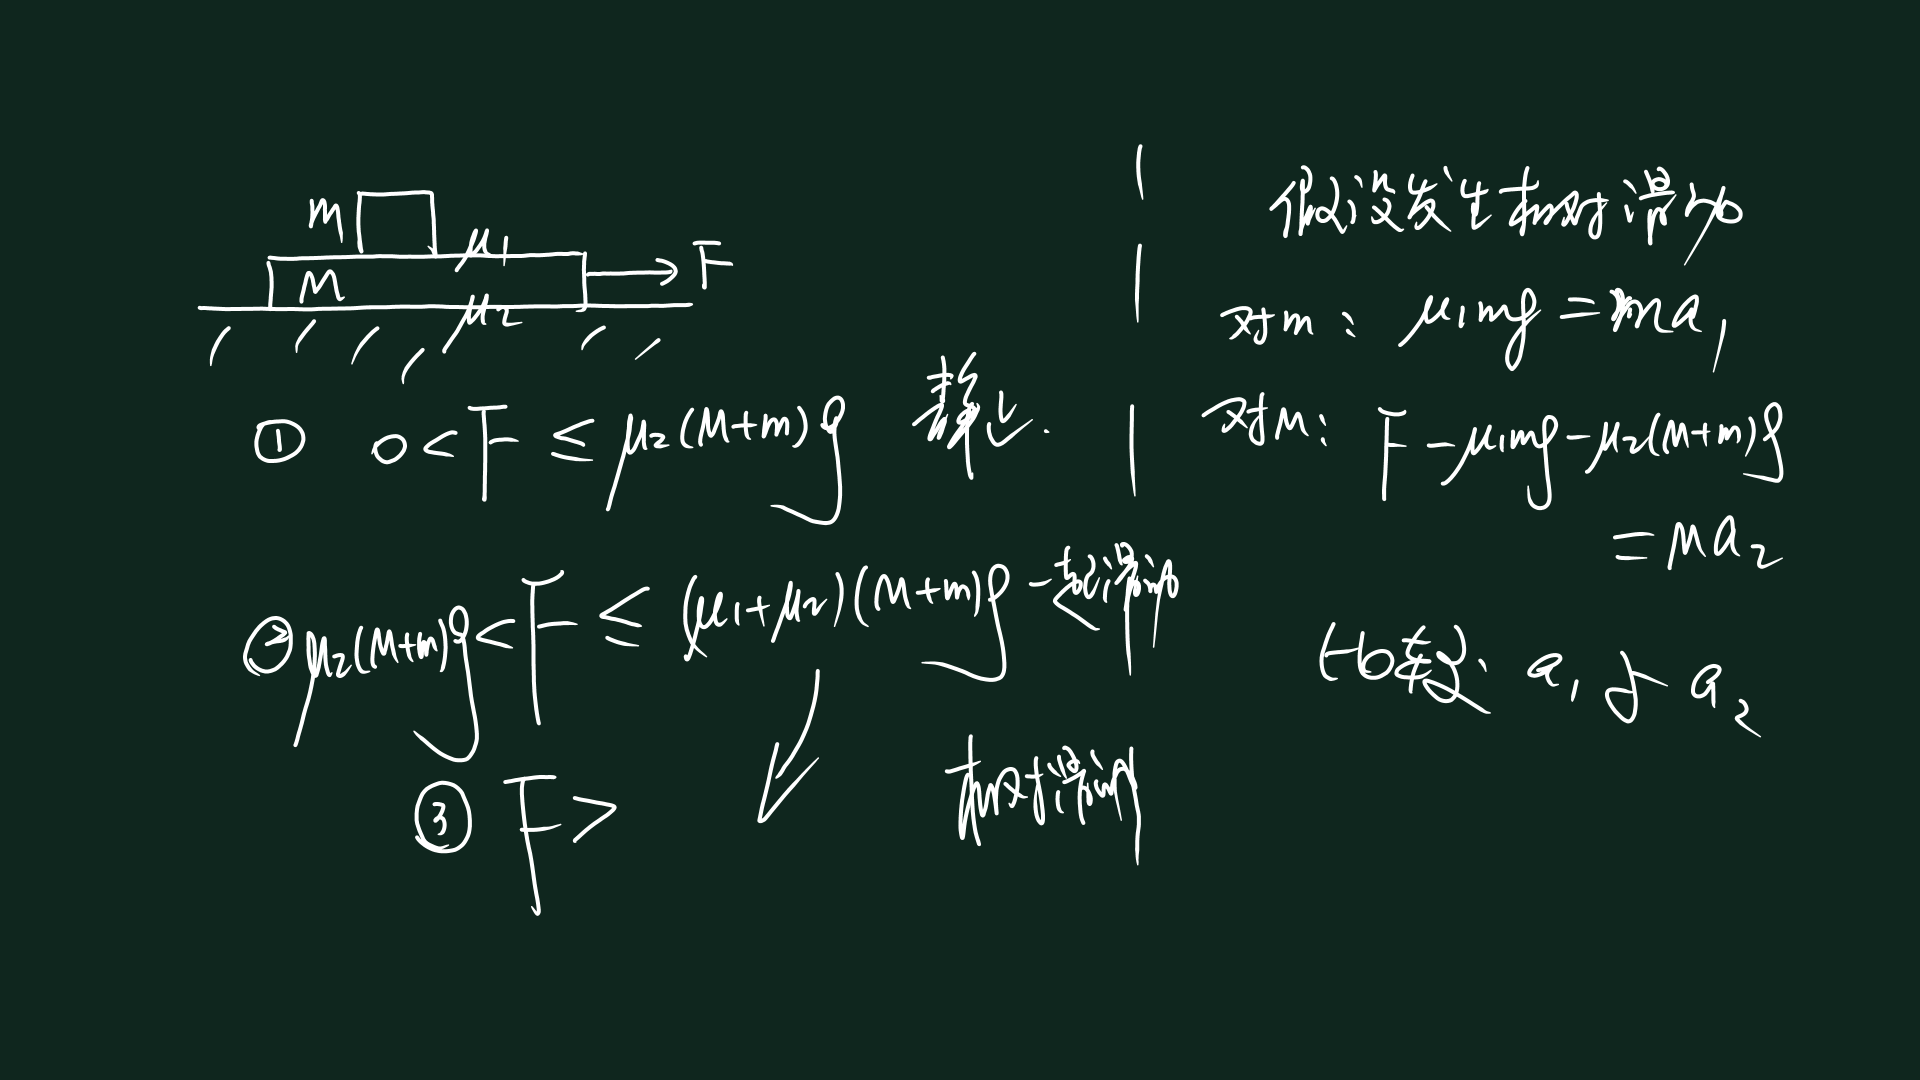 m
μ₁
M
F
μ₂
① 0<F≤μ₂(M+m)g 静止.
② μ₂(M+m)g<F≤(μ₁+μ₂)(M+m)g 一起滑动
③ F> 相对滑动
假设发生相对滑动
对m: μ₁mg=ma₁
对M: F-μ₁mg-μ₂(M+m)g
=Ma₂
比较: a₁与a₂